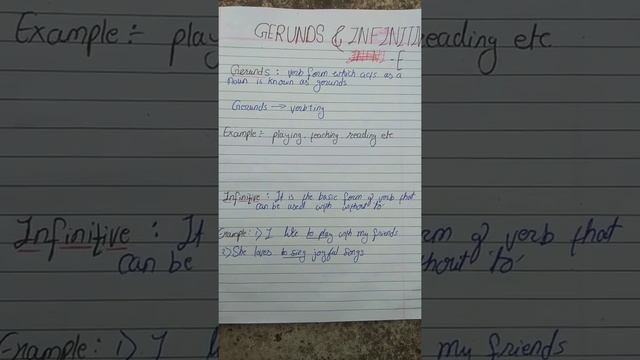 GERUNDS & INFINITIV
-E
Gerunds : verb form which acts as a
noun is known as gerunds
Gerunds → verb+ing
Example :- playing, teaching, reading etc
Infinitive : It is the basic form of verb that
can be used with without to
Example : 1) I like to play with my friends
2) She loves to sing joyful songs
Example :- play
reading etc
Infinitive : It
can be
Example : 1) I
form of verb that
thout to
my friends